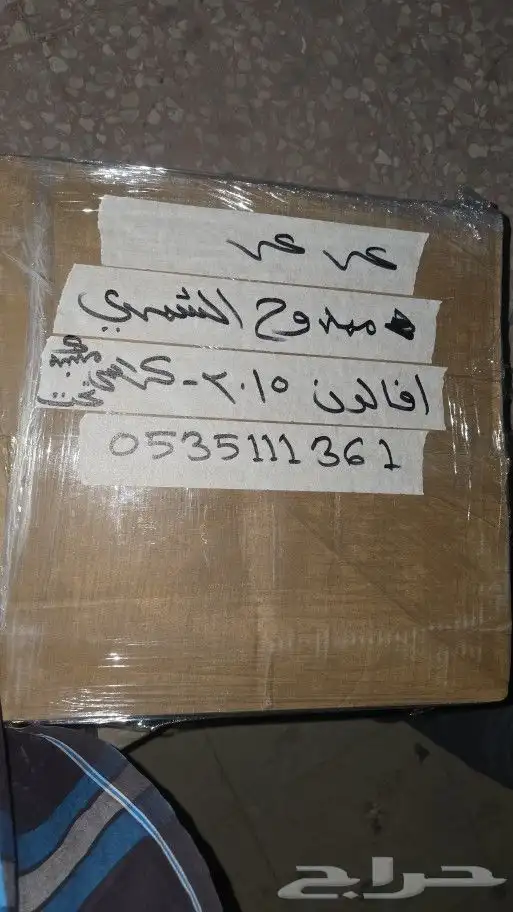 عرعر
ممدوح الشمري
افالون ٢٠١٥ -
0535111361
حراج